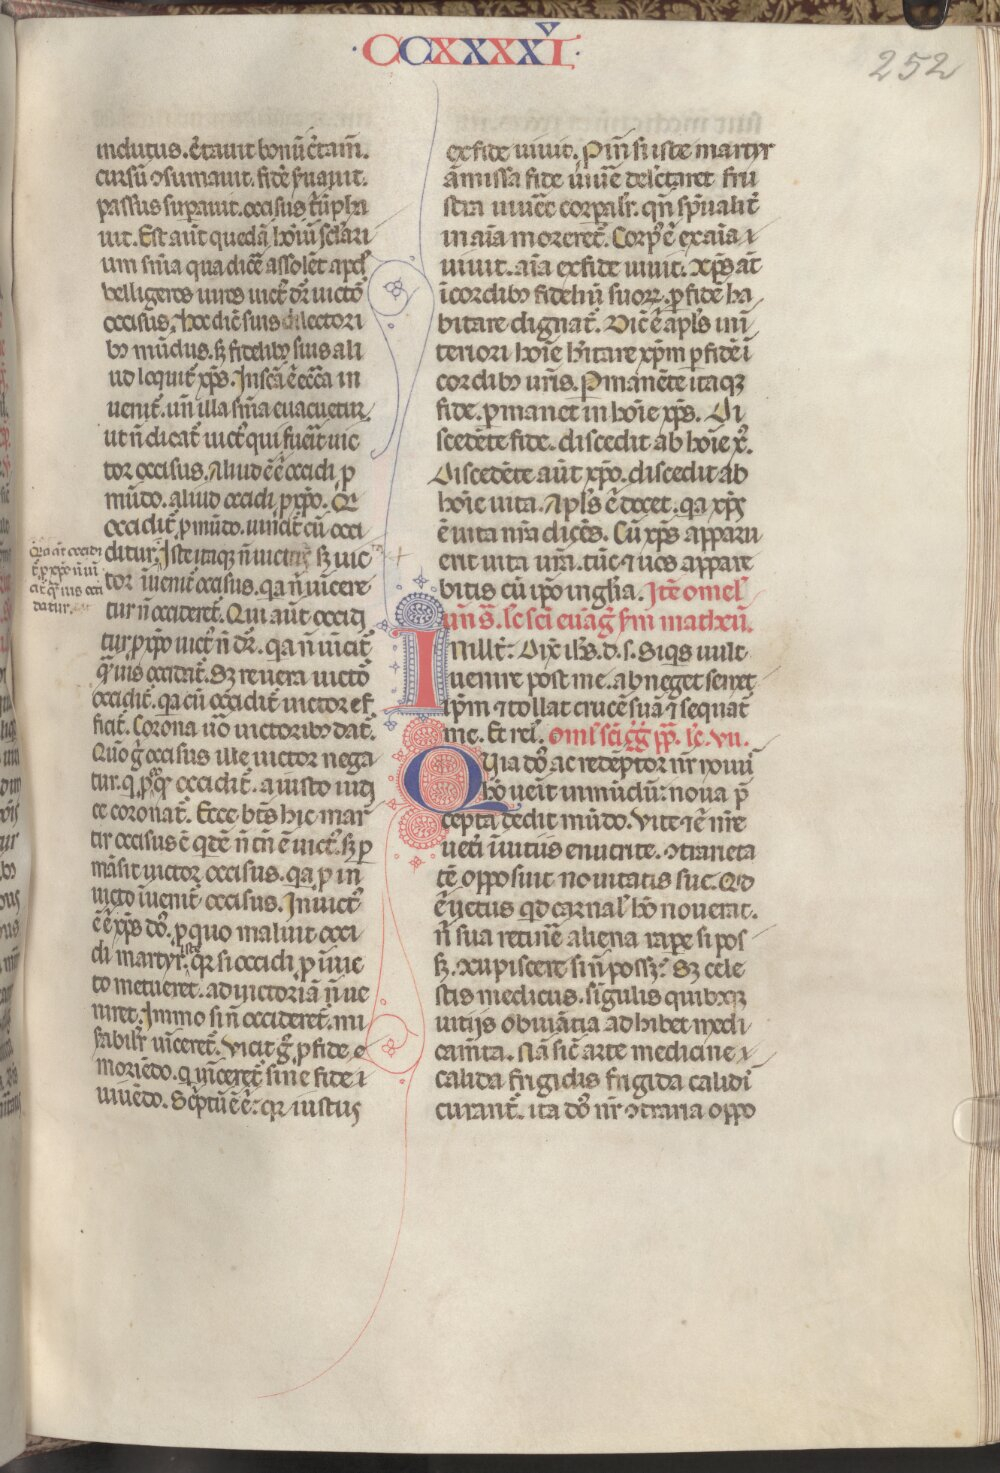 CCXXXXVI
252
indutus. c̄tauit bonū c̄tam̄.
cursū ↄsumauit. fidē ẜuauit.
passus suꝑauit. occisus t̄ūpha
uit. Est aūt quedā hoīū sc̄lari
um sn̄ia qua dic̄e assolēt apd̄
belligeros uiros uict᷒ dr̄ uictō
occisus. hoc dic̄ suis dilectori
bꝰ mūdus. sꝫ fidelibꝰ suis ali
ud loquit᷒ xp̄s. In scā ē ecc̄a in
uenit᷒. un̄ illa sn̄ia euacuetur
ut n̄ dicat᷒ uict᷒ qui fuerit uic
tor occisus. Aliud ē ē occidi ꝑ
mūdo. aliud occidi ꝑ xp̄o. Qi
occidit᷒ ꝑ mūdo. uincit᷒ cū occi
ditur. Iste itaqꝫ n̄ uictus sꝫ uic
tor īuenit᷒ occisus. qa n̄ uīcere
tur n̄ occideret᷒. Qui aūt occidi
tur ꝑ xp̄o uict᷒ n̄ dr̄. qa n̄ uīcit᷒
qͣuis occidat᷒. Sꝫ reuera uictō
occidit᷒. qa cū occidit᷒ uictor ef
ficit᷒. Corona ū̄o uictoribꝰ dat᷒.
Quō ḡ occisus ille uictor nega
tur. q ꝑ xp̄o occidit᷒. a iusto iudi
ce coronat᷒. Ecce bt̄s hic mar
tir occisus ē qͥdē n̄ tn̄ ē uict᷒. sꝫ ꝑ
māsit uictor occisus. qa ꝑ in
uicto īuenit᷒ occisus. Inuict᷒
ē ē xp̄s dō. ꝑ quo maluit occi
di martyr iste qͥ si occidi ꝑ iuue
to metueret. ad uictoriā n̄ ue
niret. Immo si n̄ occideret᷒. mi
ẜabilit᷒ uīceret᷒. Vicit ḡ ꝑ fide
moriēdo. q uīceret᷒ sine fide
uiuēdo. Sc̄ptū ē ē: qꝛ iustus
Qia aūt occidi
t᷒ ꝑ xp̄o n̄ uī
cit᷒ qͣuis occi
datur.
ex fide uiuit. Pin̄ si iste martyr
āmissa fide uiu̅e delc̄taret fru
stra uiueēt corpalr̄. qn̄ sp̄ualit᷒
in aīa moreret᷒. Corpꝰ ē ex aīa
uiuit. aīa ex fide uiuit. Xp̄s āt
ī cordibꝰ fideliū suoꝝ ꝑ fidē ha
bitare dignat᷒. Dic̄ ē apl̄s in ī
teriori hoīe h̄itare xp̄m ꝑ fidē ī
cordibꝰ uris. Pmanēte itaqꝫ
fide. ꝑmanet in hoīe xp̄s. Di
scedēte fide. discedit ab hoīe x᷒.
Discedēte aūt xp̄o. discedit ab
hoīe uita. Apl̄s ē docet. qa xp̄s
ē uita nr̄a dicēs. Cū xp̄s apparu
erit uita ur̄a. tūc ⁊ uos appare
bitis cū ip̄o in glīa. Itē omel
un̄ s̄. sc̄ sci euāḡ sm̄ mathm̄.
In illt̄: Dix̄ ih̄s. d. s. Siqͥs uult
uenire post me. abneget semet
ip̄m ⁊ tollat crucē suā ⁊ sequat᷒
me. Et rel̄. omī sci ḡḡ pp̄. lc̄. vii.
Qia dō ac redēptor nr̄ noui
hō uēit in mūdū: noua p̄
cepta dedit mūdo. Vite ē ē nr̄e
uetī ī uitiis enutrite. ↄtrarieta
tē opposuit nouitatis sue. Qd
ē uetus qd carnal̄ hō nouerat.
n̄ sua retinēe aliena rape si pos
sꝫ. ↄcupiscere si n̄ possꝫ. Sꝫ cele
stis medicus. sīgulis quibꝫqꝫ
uitijs obuiātia adhibet medi
cam̄ta. Nā sic̄ arte medicine
calida frigidis frigida calidi
curant᷒. ita dō nr̄ ↄtraria oppo